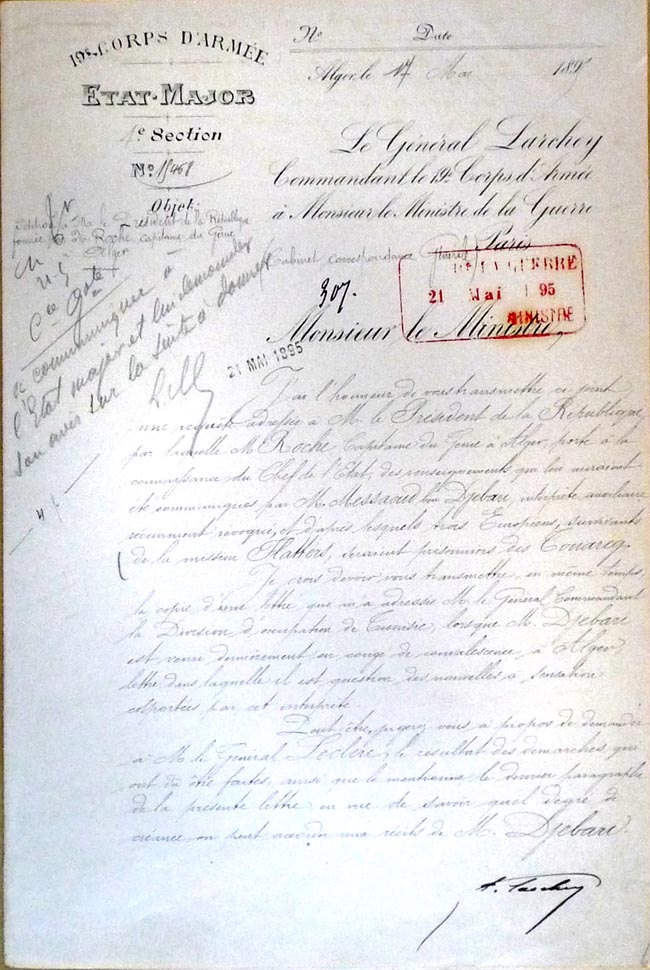 19e CORPS D'ARMÉE
ETAT-MAJOR
e Section
No 15468
Objet:
No Date
Alger, le 17 Mai 1895
Le Général Larchey
Commandant le 19e Corps d'Armée
à Monsieur le Ministre de la Guerre
Paris
Cabinet correspondance Générale
à M. le Président de la République
M. Roche, capitaine du Génie
Alger
à communiquer à
l'Etat major et lui demander
son avis sur la suite à donner
DE LA GUERRE
21 Mai 95
MINISTRE
307.
21 MAI 1895
Monsieur le Ministre,
J'ai l'honneur de vous transmettre ci-joint
une requête adressée à M. le Président de la République
par laquelle M. Roche Capitaine du Génie à Alger, porte à la
connaissance du Chef de l'Etat, des renseignements qui lui auraient
été communiqués par M. Messaoud ben Djebari, interprète auxiliaire
récemment révoqué, et d'après lesquels trois Européens, survivants
de la mission Flatters, seraient prisonniers des Touareg.
Je crois devoir vous transmettre, en même temps,
la copie d'une lettre que m'a adressée M. le Général Commandant
la Division d'occupation de Tunisie, lorsque M. Djebari
est venu dernièrement en congé de convalescence à Alger,
lettre dans laquelle il est question des nouvelles à sensation
colportées par cet interprète.
Peut-être, jugerez vous à propos de demander
à M. le Général Leclerc, le résultat des démarches qui
ont dû être faites, ainsi que le mentionne le dernier paragraphe
de la présente lettre en vue de savoir quel degré de
créance on peut accorder aux récits de M. Djebari.
Larchey